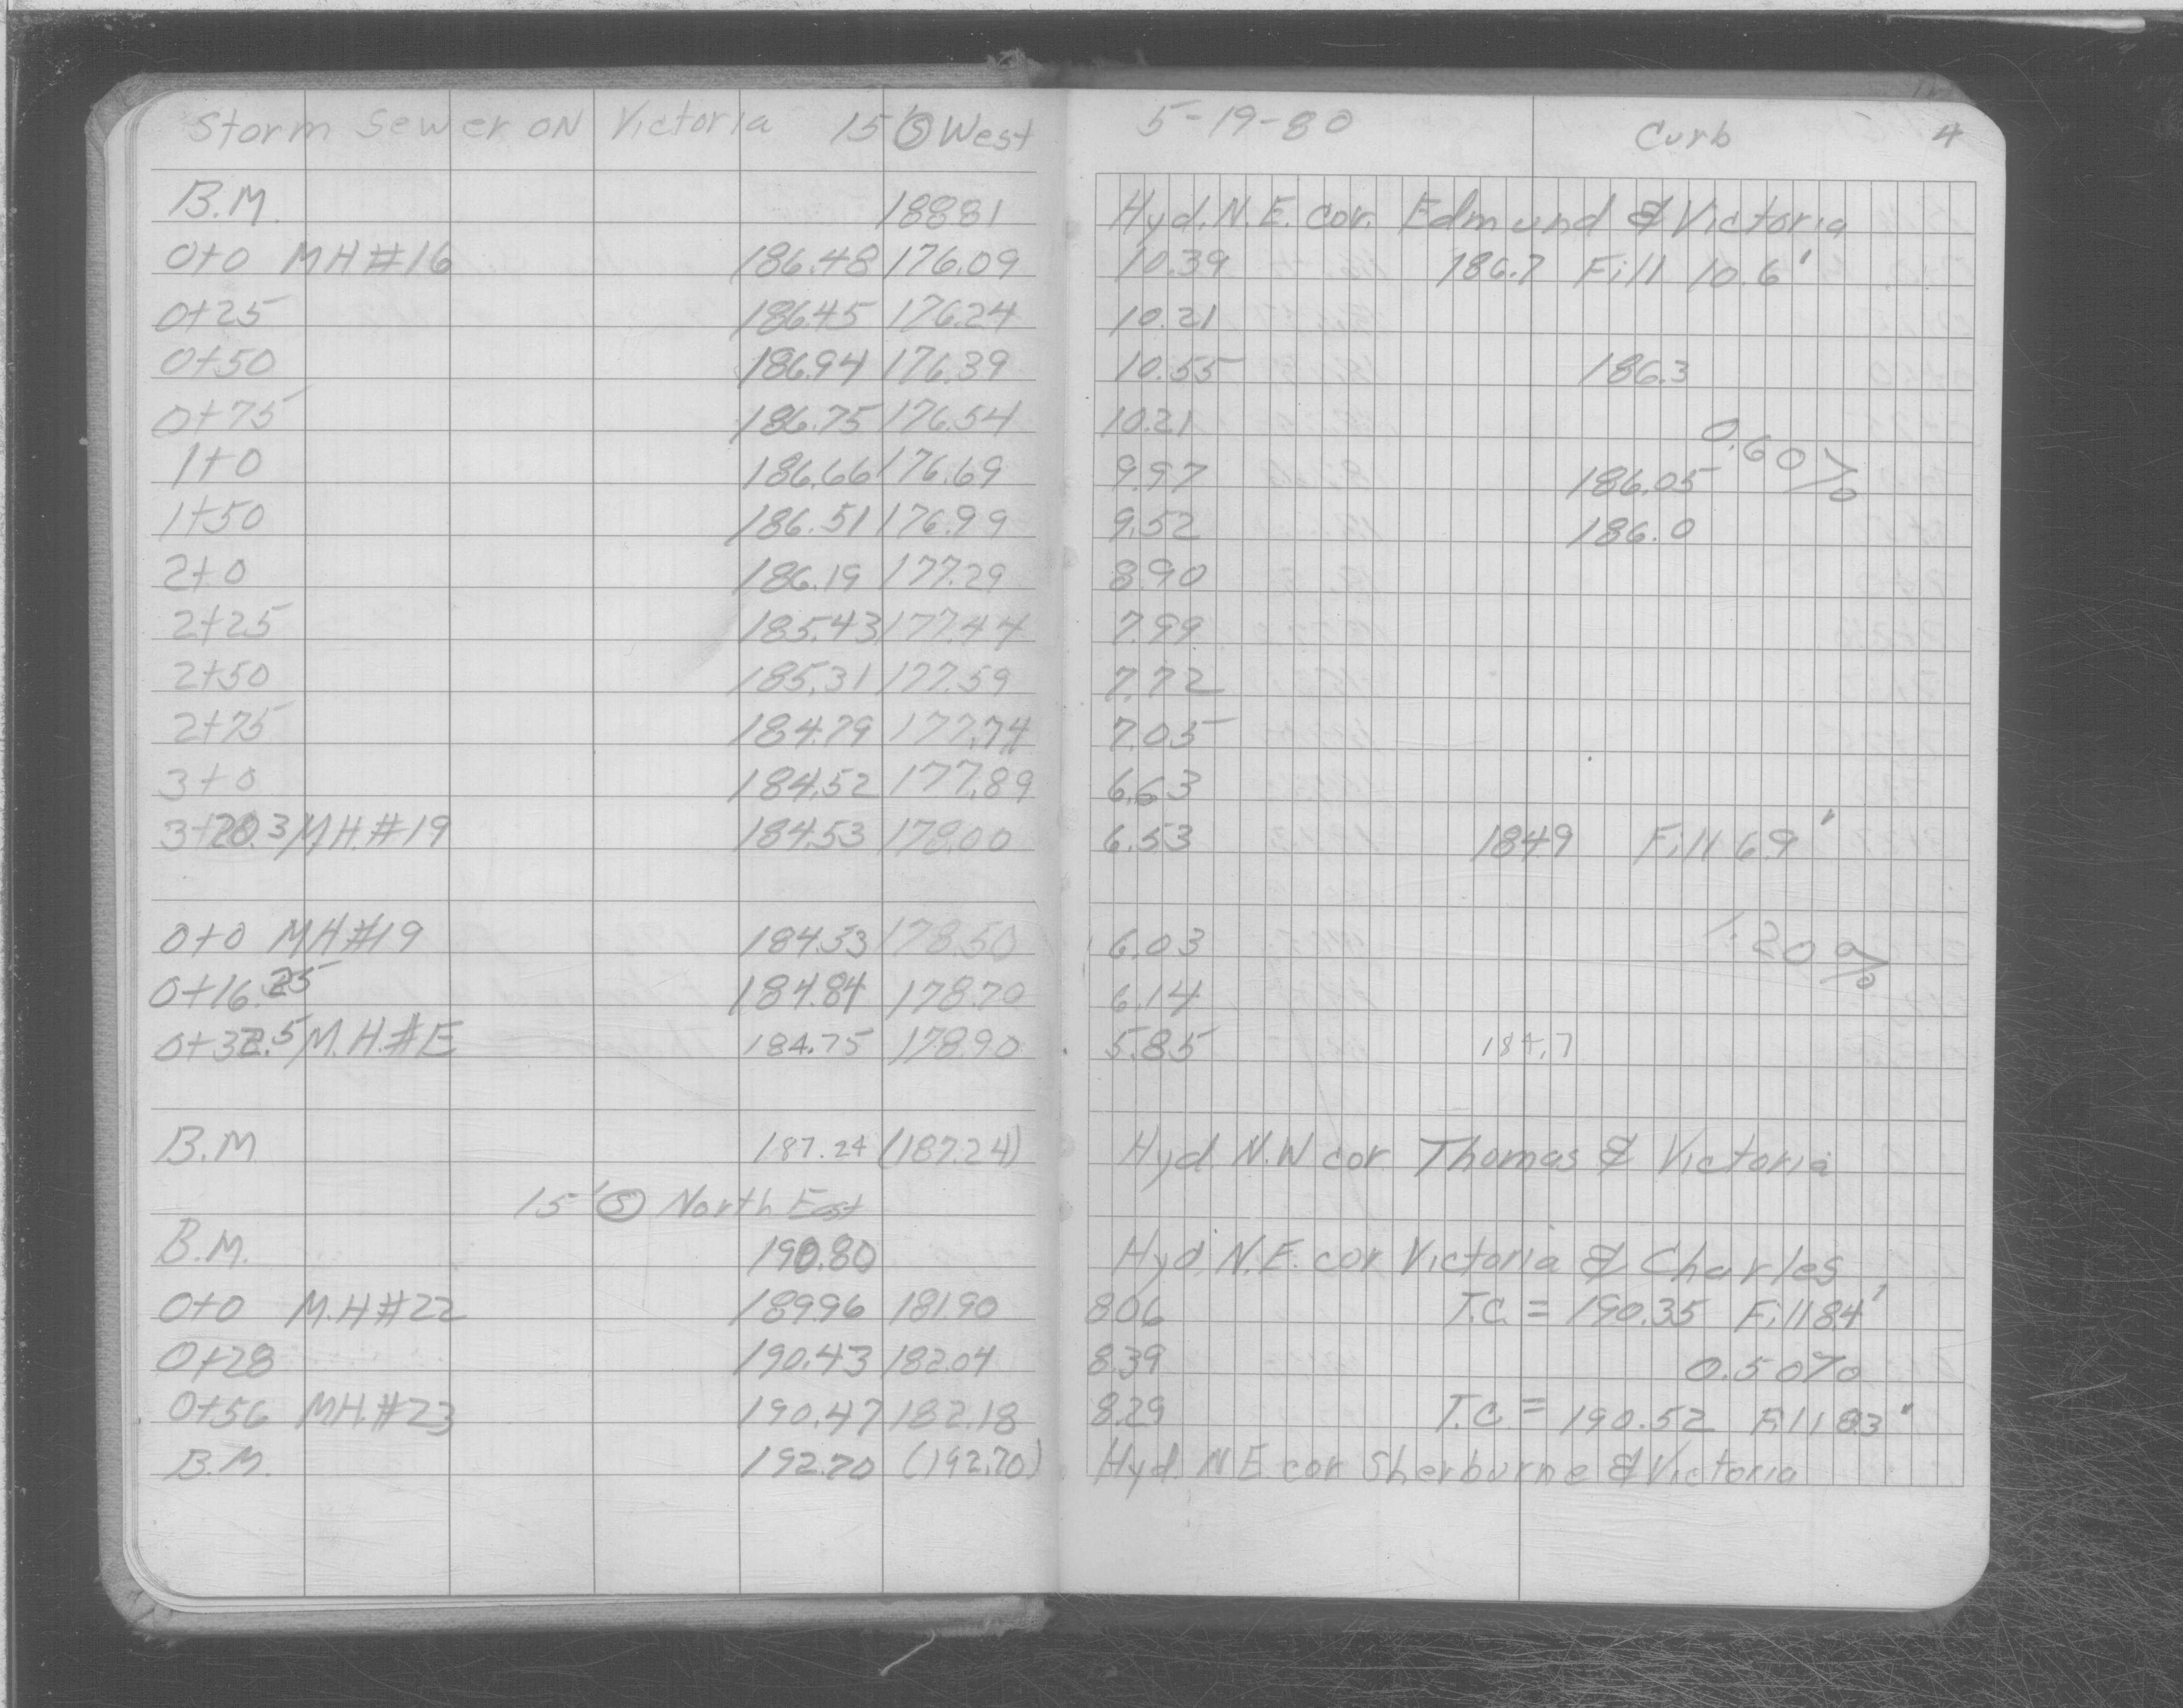 Storm Sewer on Victoria 15' Ⓢ West 5-19-80 Curb 4
B.M. 188.81 Hyd. N.E. cor. Edmund & Victoria
0+0 MH#16 186.48 176.09 10.39 186.7 Fill 10.6'
0+25 186.45 176.24 10.21
0+50 186.94 176.39 10.55 186.3
0+75 186.75 176.54 10.21 0.60%
1+0 186.66 176.69 9.97 186.05
1+50 186.51 176.99 9.52 186.0
2+0 186.19 177.29 8.90
2+25 185.43 177.44 7.99
2+50 185.31 177.59 7.72
2+75 184.79 177.74 7.05
3+0 184.52 177.89 6.63
3+20.3 M.H.#19 184.53 178.00 6.53 184.9 Fill 6.9'
0+0 MH#19 184.53 178.50 6.03 1.20%
0+16.25 184.84 178.70 6.14
0+32.5 M.H.#E 184.75 178.90 5.85 184.7
B.M 187.24 (187.24) Hyd. N.W cor Thomas & Victoria
15' Ⓢ North East
B.M. 190.80 Hyd. N.E. cor Victoria & Charles
0+0 M.H#22 189.96 181.90 8.06 T.C. = 190.35 Fill 8.4'
0+28 190.43 182.04 8.39 0.50%
0+56 MH.#23 190.47 182.18 8.29 T.C. = 190.52 Fill 8.3'
B.M. 192.70 (192.70) Hyd. N.E. cor Sherburne & Victoria